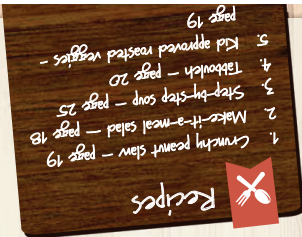 Recipes
1. Crunchy peanut slaw – page 19
2. Make-it-a-meal salad – page 18
3. Step-by-step soup – page 25
4. Tabbouleh – page 20
5. Kid approved roasted veggies –
page 19